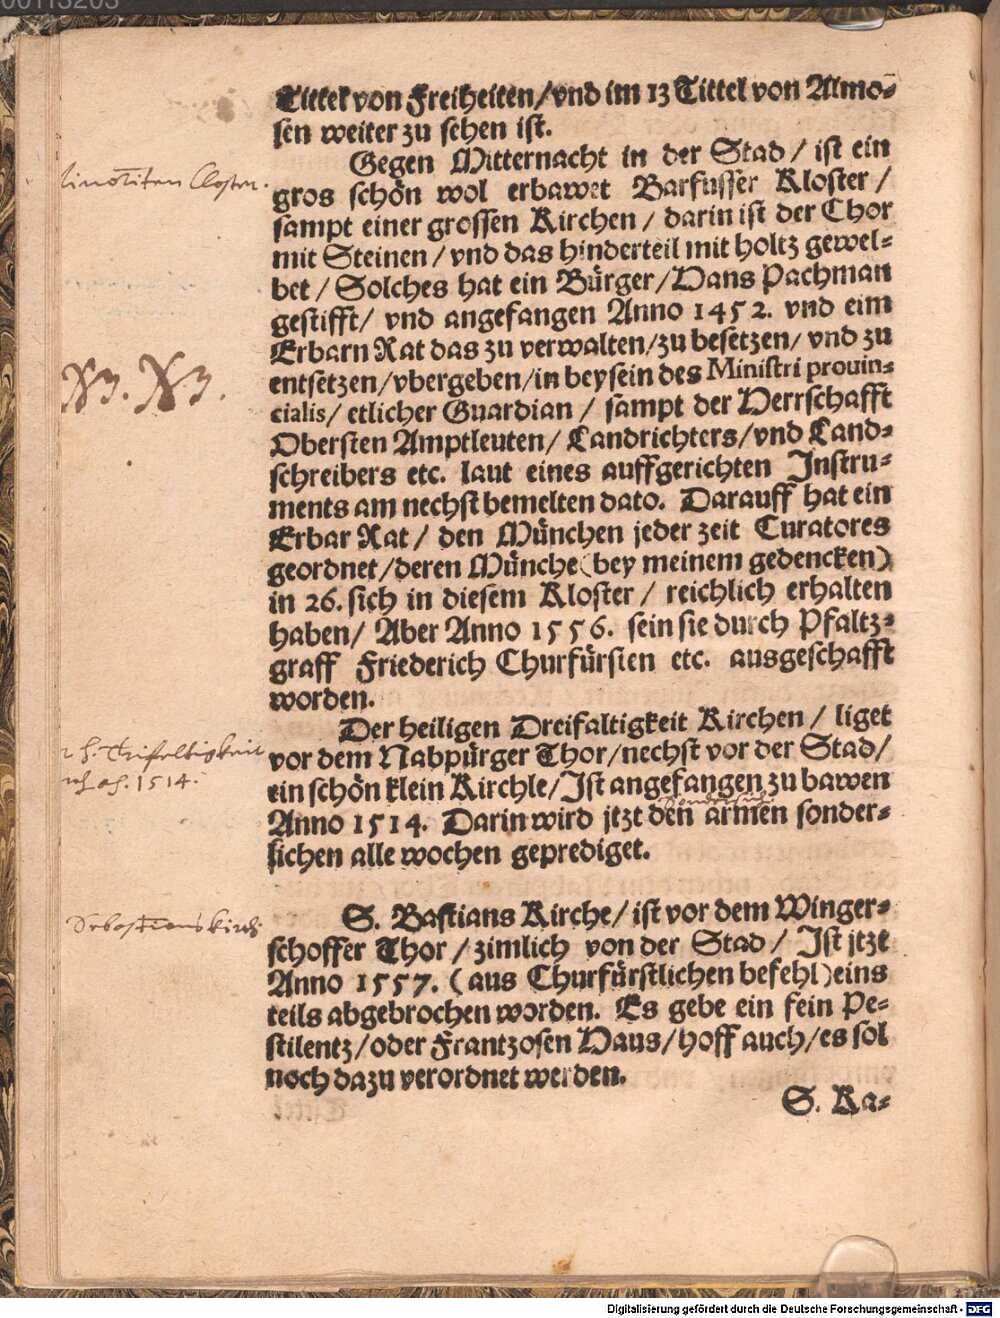 00113203
Tittel von Freiheiten/vnd im 13 Tittel von Almo⸗
sen weiter zu sehen ist.
Gegen Mitternacht in der Stad/ ist ein
gros schön wol erbawet Barfusser Kloster/
sampt einer grossen Kirchen/ darin ist der Chor
mit Steinen/ vnd das hinderteil mit holtz gewel⸗
bet/ Solches hat ein Bürger/Hans Pachman
gestifft/ vnd angefangen Anno 1452. vnd eim
Erbarn Rat das zu verwalten/zu besetzen/ vnd zu
entsetzen/vbergeben/in beysein des Ministri provin⸗
cialis/ etlicher Guardian/ sampt der Herrschafft
Obersten Amptleuten/ Landrichters/vnd Land⸗
schreibers etc. laut eines auffgerichten Instru⸗
ments am nechst bemelten dato. Darauff hat ein
Erbar Rat/ den München jeder zeit Curatores
geordnet/deren Münche (bey meinem gedencken)
in 26. sich in diesem Kloster/ reichlich erhalten
haben/ Aber Anno 1556. sein sie durch Pfaltz⸗
graff Friederich Churfürsten etc. ausgeschafft
worden.
Der heiligen Dreifaltigkeit Kirchen/ liget
vor dem Nabpürger Thor/nechst vor der Stad/
ein schön klein Kirchle/Ist angefangen zu bawen
Anno 1514. Darin wird jtzt den armen sonder⸗
lichen alle wochen geprediget.
S. Bastians Kirche/ ist vor dem Winger⸗
schoffer Thor/ zimlich von der Stad/ Ist jtzt
Anno 1557. (aus Churfürstlichen befehl) eins
teils abgebrochen worden. Es gebe ein fein Pe⸗
stilentz/oder Frantzosen Haus/hoff auch/es sol
noch dazu verordnet werden.
S. Ka⸗
linoriten Closter.
NB. NB.
h. Trifeltigkeit
1514.
Sebastians kirch
Digitalisierung gefördert durch die Deutsche Forschungsgemeinschaft - DFG